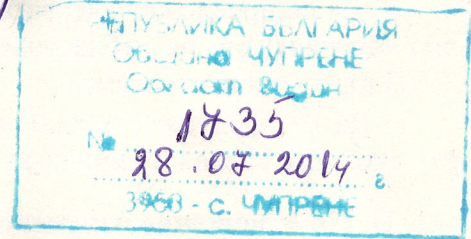 РЕПУБЛИКА БЪЛГАРИЯ
Община ЧУПРЕНЕ
Област Видин
№ 1735
28.07 2014 г.
3950 - с. ЧУПРЕНЕ